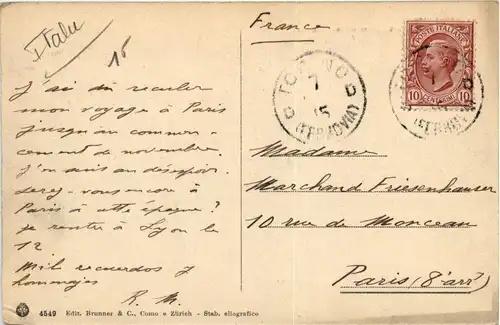 Italie
15
J'ai dû reculer
mon voyage à Paris
jusqu'au commen-
cement de novembre.
J'en suis au désespoir.
Serez-vous encore à
Paris à cette époque?
Je rentre à Lyon le
12
Mil recuerdos y
homenajes
R. M.
4549 Edit. Brunner & C., Como e Zürich - Stab. eliografico
France
POSTE ITALIANE
10 CENTESIMI 10
TORINO
7
15
(FERROVIA)
Madame
Marchand Friesenhauser
10 rue de Monceau
Paris (8e arrt)